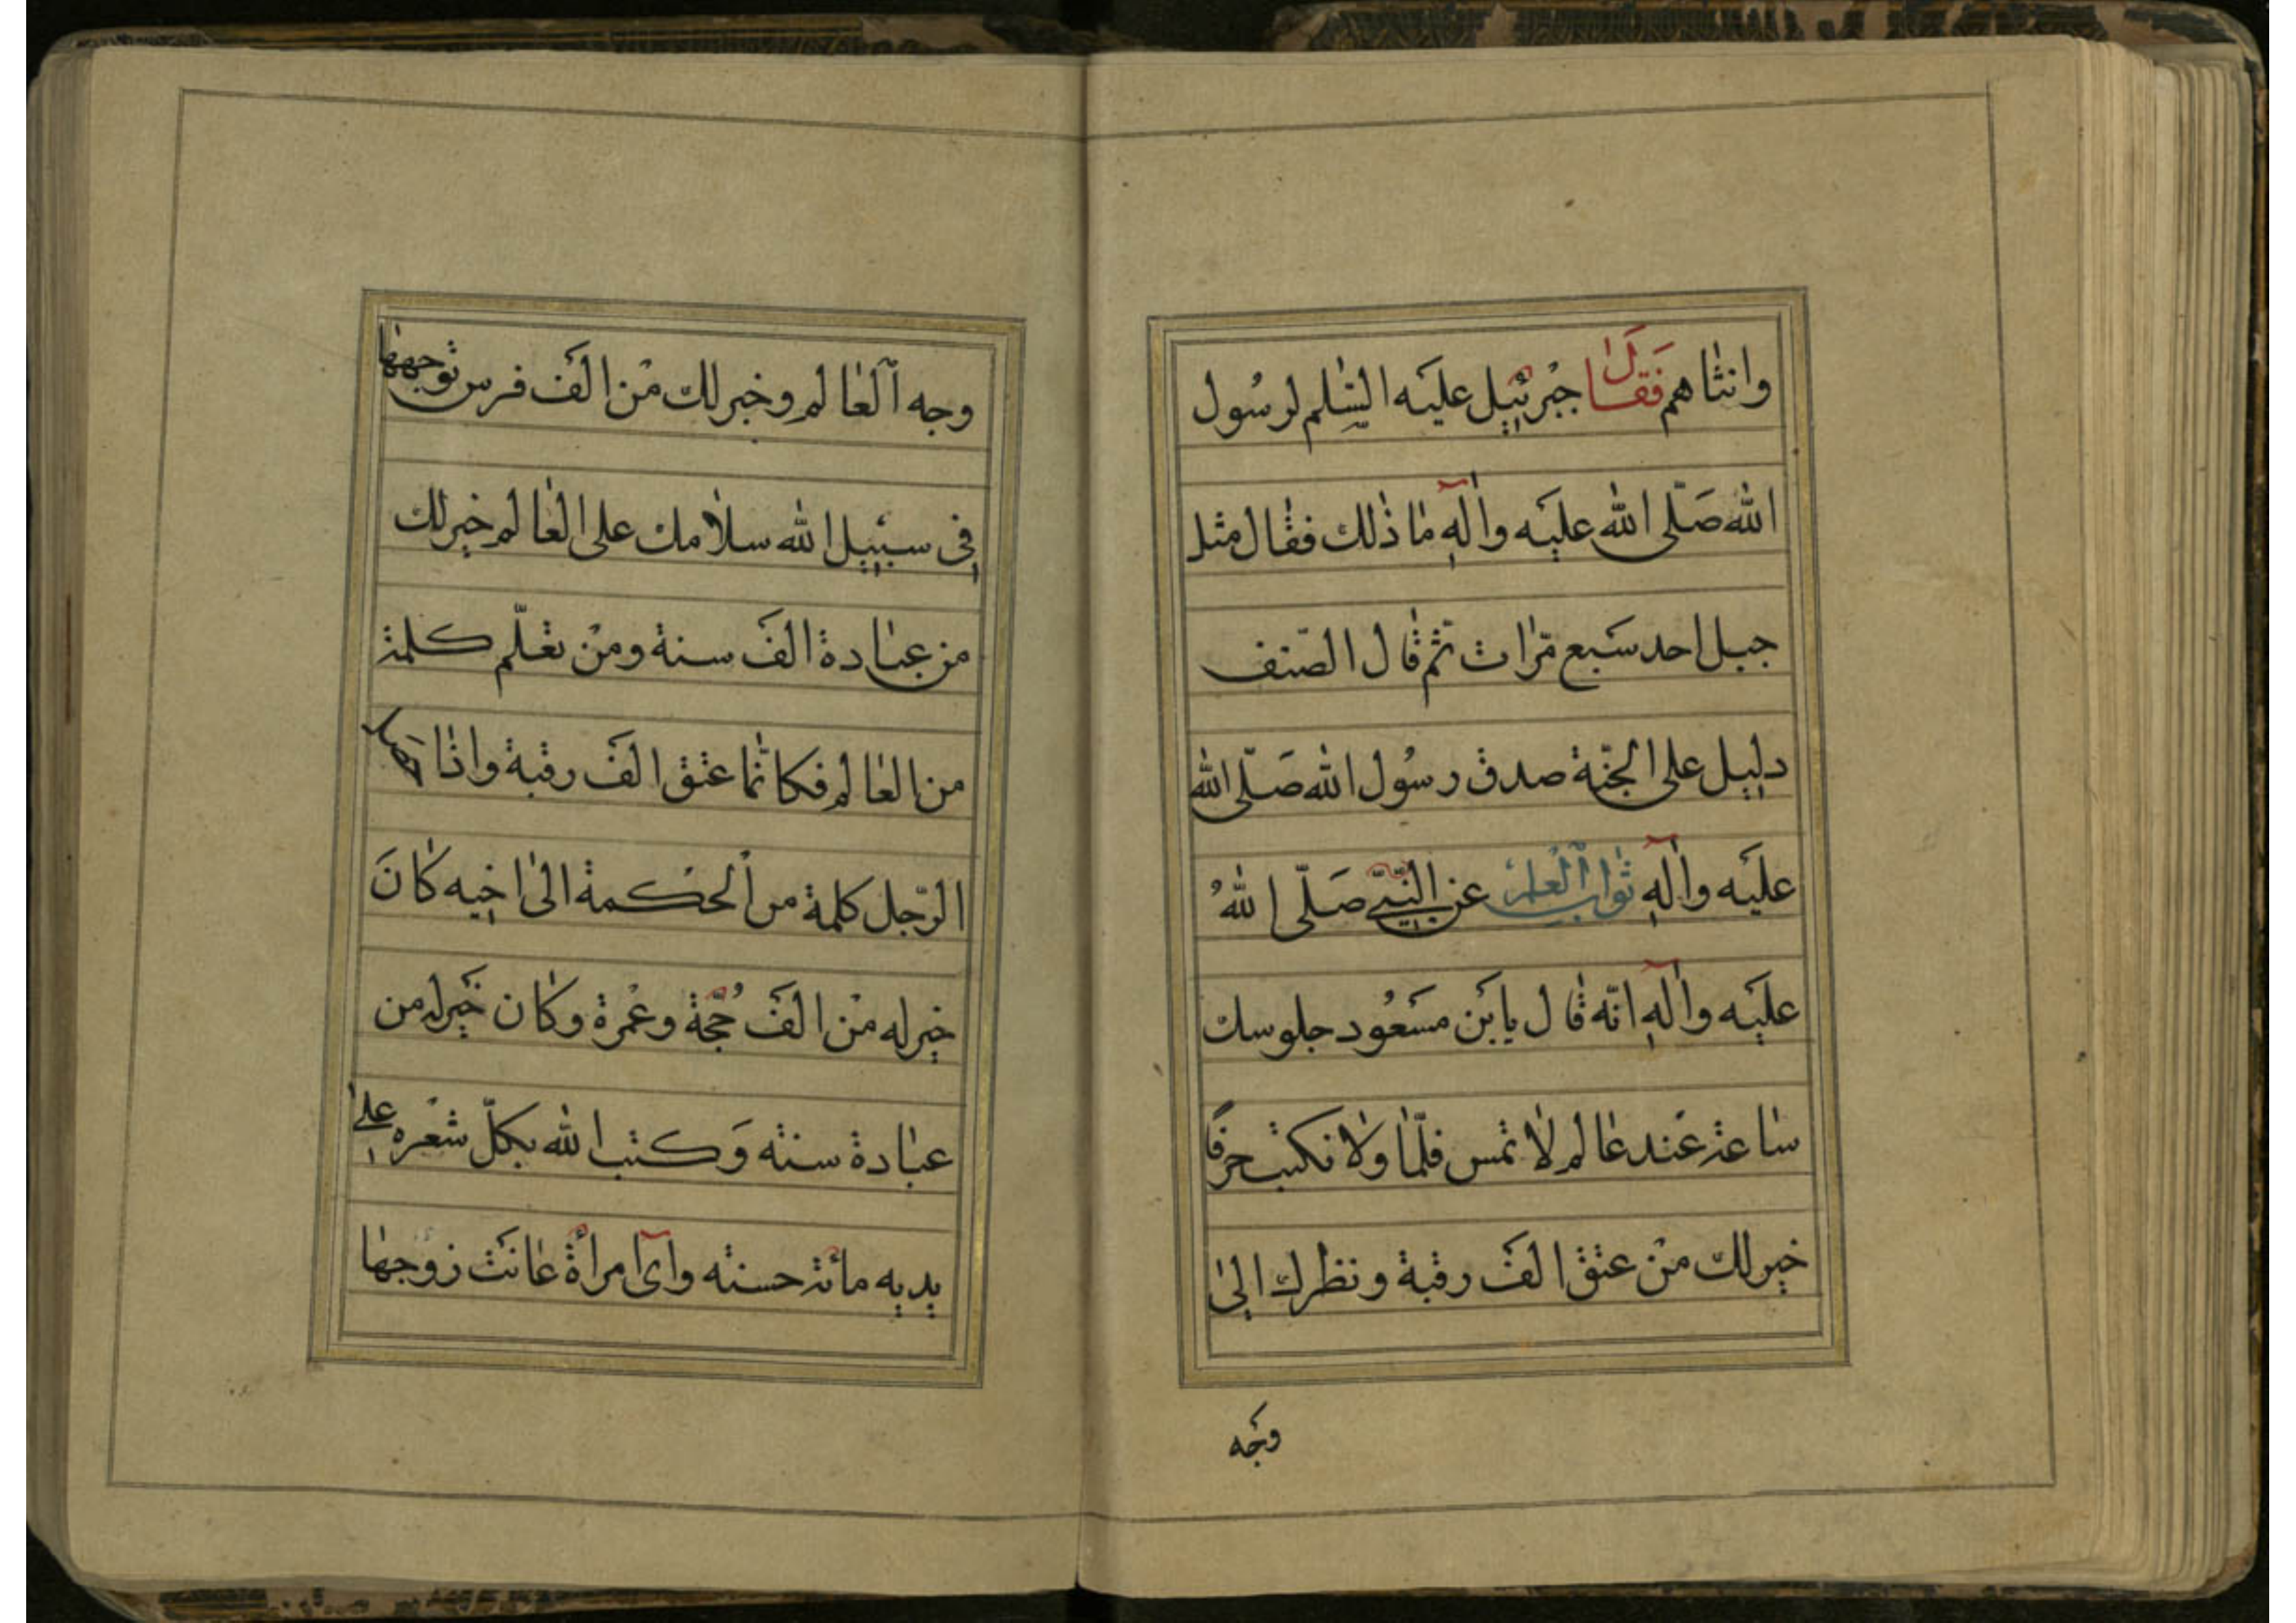 وانثاهم فقال جبرئیل علیه السلم لرسول
الله صلّی الله علیه واٰلهِ ما ذلك فقال مثل
جبل احد سبع مرّات ثم قال الصّنف
دلیل علی الجنّة صدق رسول الله صلّی الله
علیه واٰلهِ ثواب العلم عن النّبیّ صلّی اللهُ
علیه واٰلهِ انّه قال یابن مسعود جلوسك
ساعة عند عالم لا تمس قلمًا ولا تكتب حرفًا
خیر لك من عتق الف رقبة ونظرك الی
وجه
وجه العالم وخیر لك من الف فرس توجهها
فی سبیل الله سلامك علی العالم خیر لك
من عبادة الف سنة ومن تعلّم كلمة
من العالم فكانّما عتق الف رقبة واذا
الرّجل كلمة من الحكمة الی اخیه كانَ
خیر له من الف حجّة وعمرة وكان خیر له من
عبادة سنته وَكتب الله بكلّ شعره علی
یدیه مائة حسنته وایّ امرأة عانت زوجها